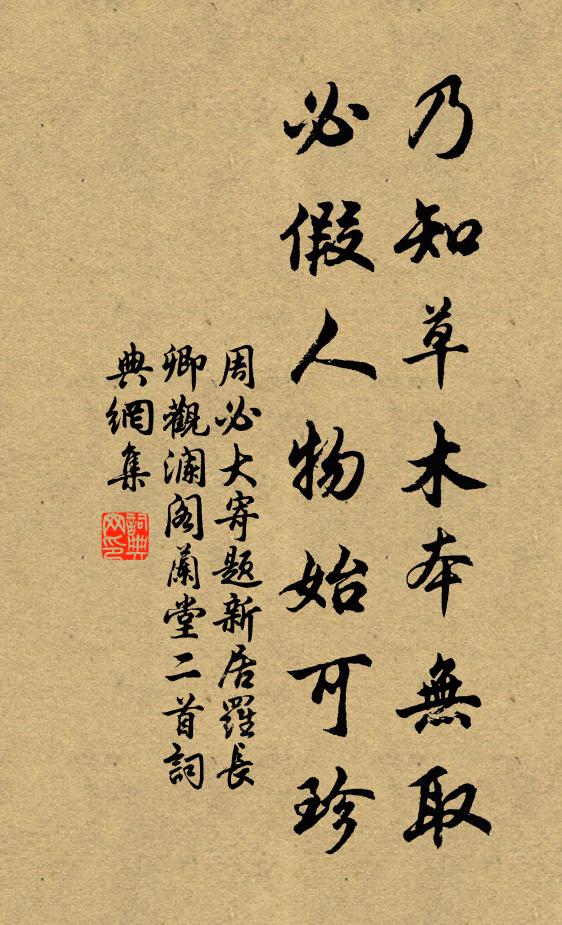 乃知草木本無取
必假人物始可珍
周必大寄題新居羅長
卿觀瀾閣蘭堂二首詞
典網集
詞典
网印